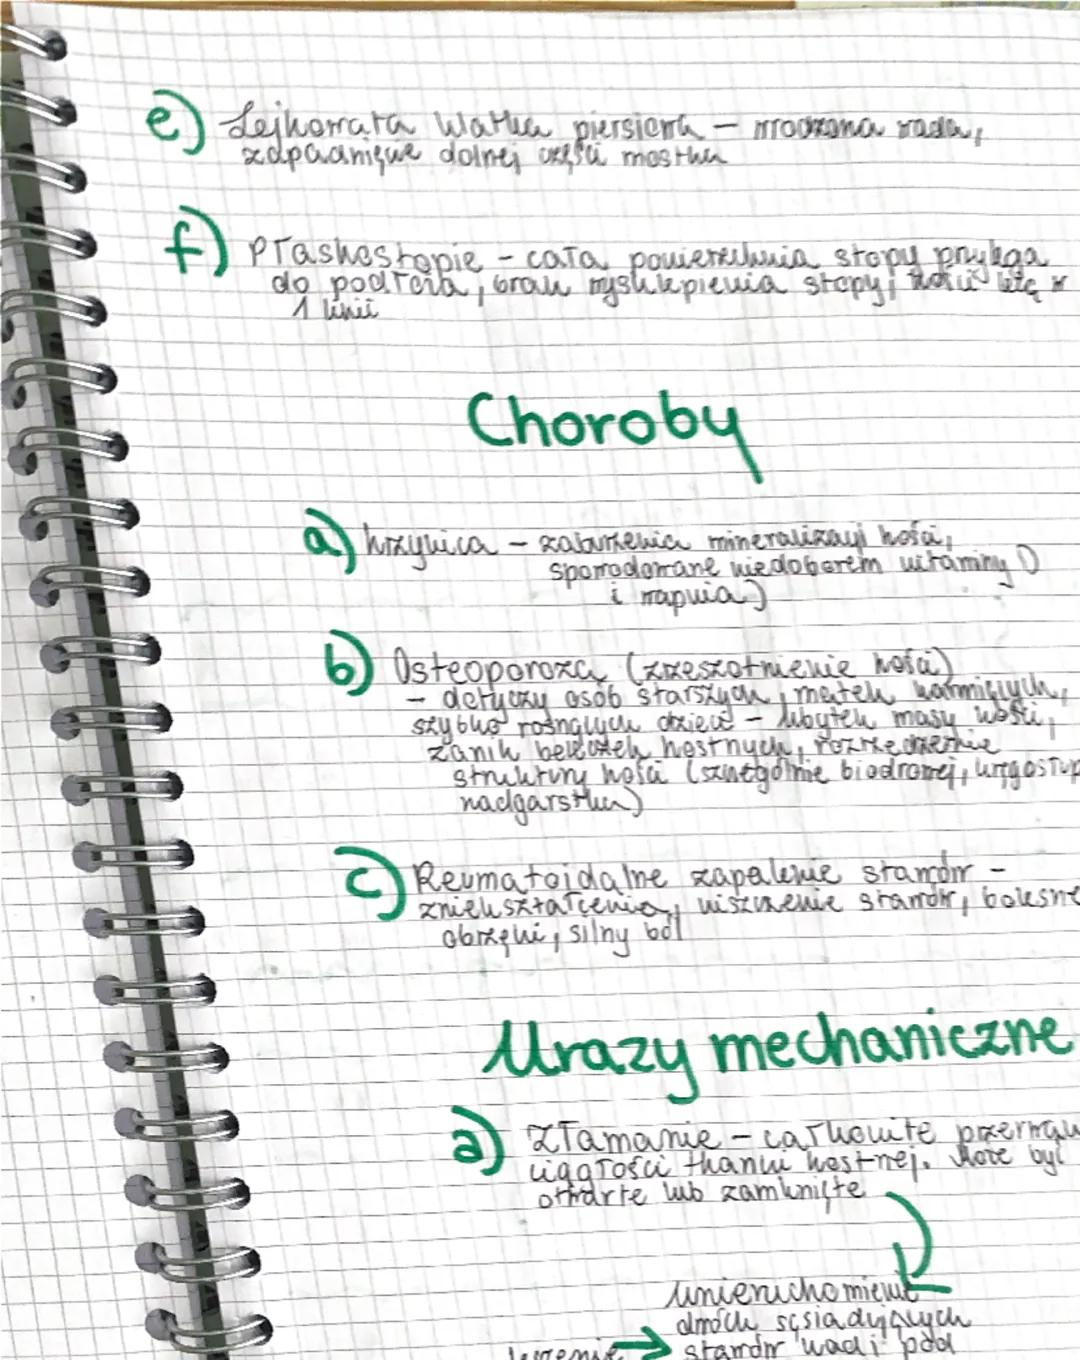 e) Lejkowata klatka piersiowa – wrodzona wada,
zapadnięcie dolnej części mostku
f) Płaskostopie – cała powierzchnia stopy przylega
do podłoża, brak wysklepienia stopy, kości leżą w
1 linii
Choroby
a) krzywica – zaburzenia mineralizacji kości,
spowodowane niedoborem witaminy D
i wapnia)
b) Osteoporoza (zrzeszotnienie kości)
– dotyczy osób starszych, matek karmiących,
szybko rosnących dzieci – ubytek masy kości,
zanik beleczek kostnych, rozrzedzenie
struktury kości (szczególnie biodrowej, kręgosłup
nadgarstku)
c) Reumatoidalne zapalenie stawów –
zniekształcenia, niszczenie stawów, bolesne
obrzęki, silny ból
Urazy mechaniczne
a) złamanie – całkowite przerwan
ciągłości tkanki kostnej. Może być
otwarte lub zamknięte
unieruchomienie
dwóch sąsiadujących
leczenie → stawów nad i pod